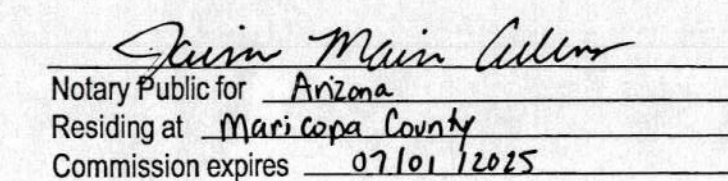 Main
Notary Public for Arizona
Residing at Maricopa County
Commission expires 07/01/2025